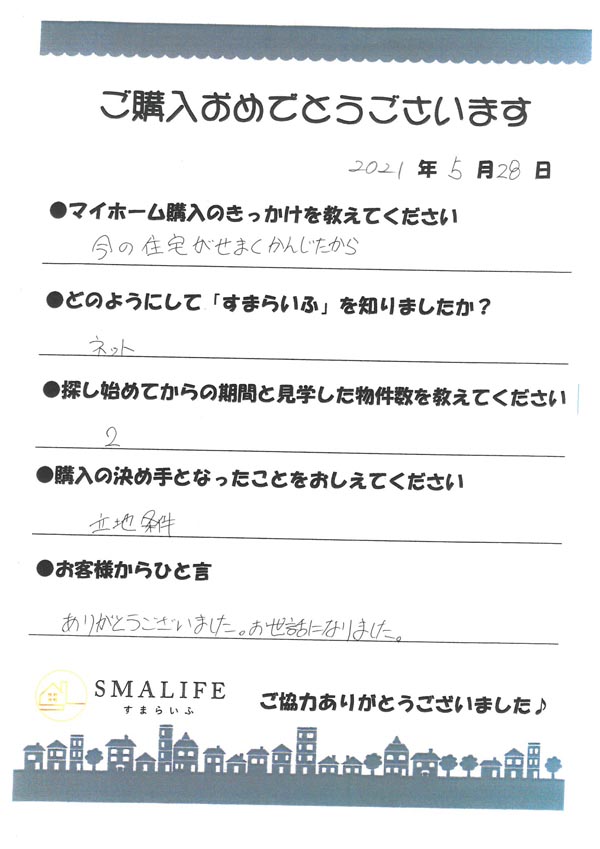 ご購入おめでとうございます
2021年5月28日
●マイホーム購入のきっかけを教えてください
今の住宅がせまくかんじたから
●どのようにして「すまらいふ」を知りましたか？
ネット
●探し始めてからの期間と見学した物件数を教えてください
2
●購入の決め手となったことをおしえてください
立地条件
●お客様からひと言
ありがとうございました。お世話になりました。
SMALIFE
すまらいふ
ご協力ありがとうございました♪